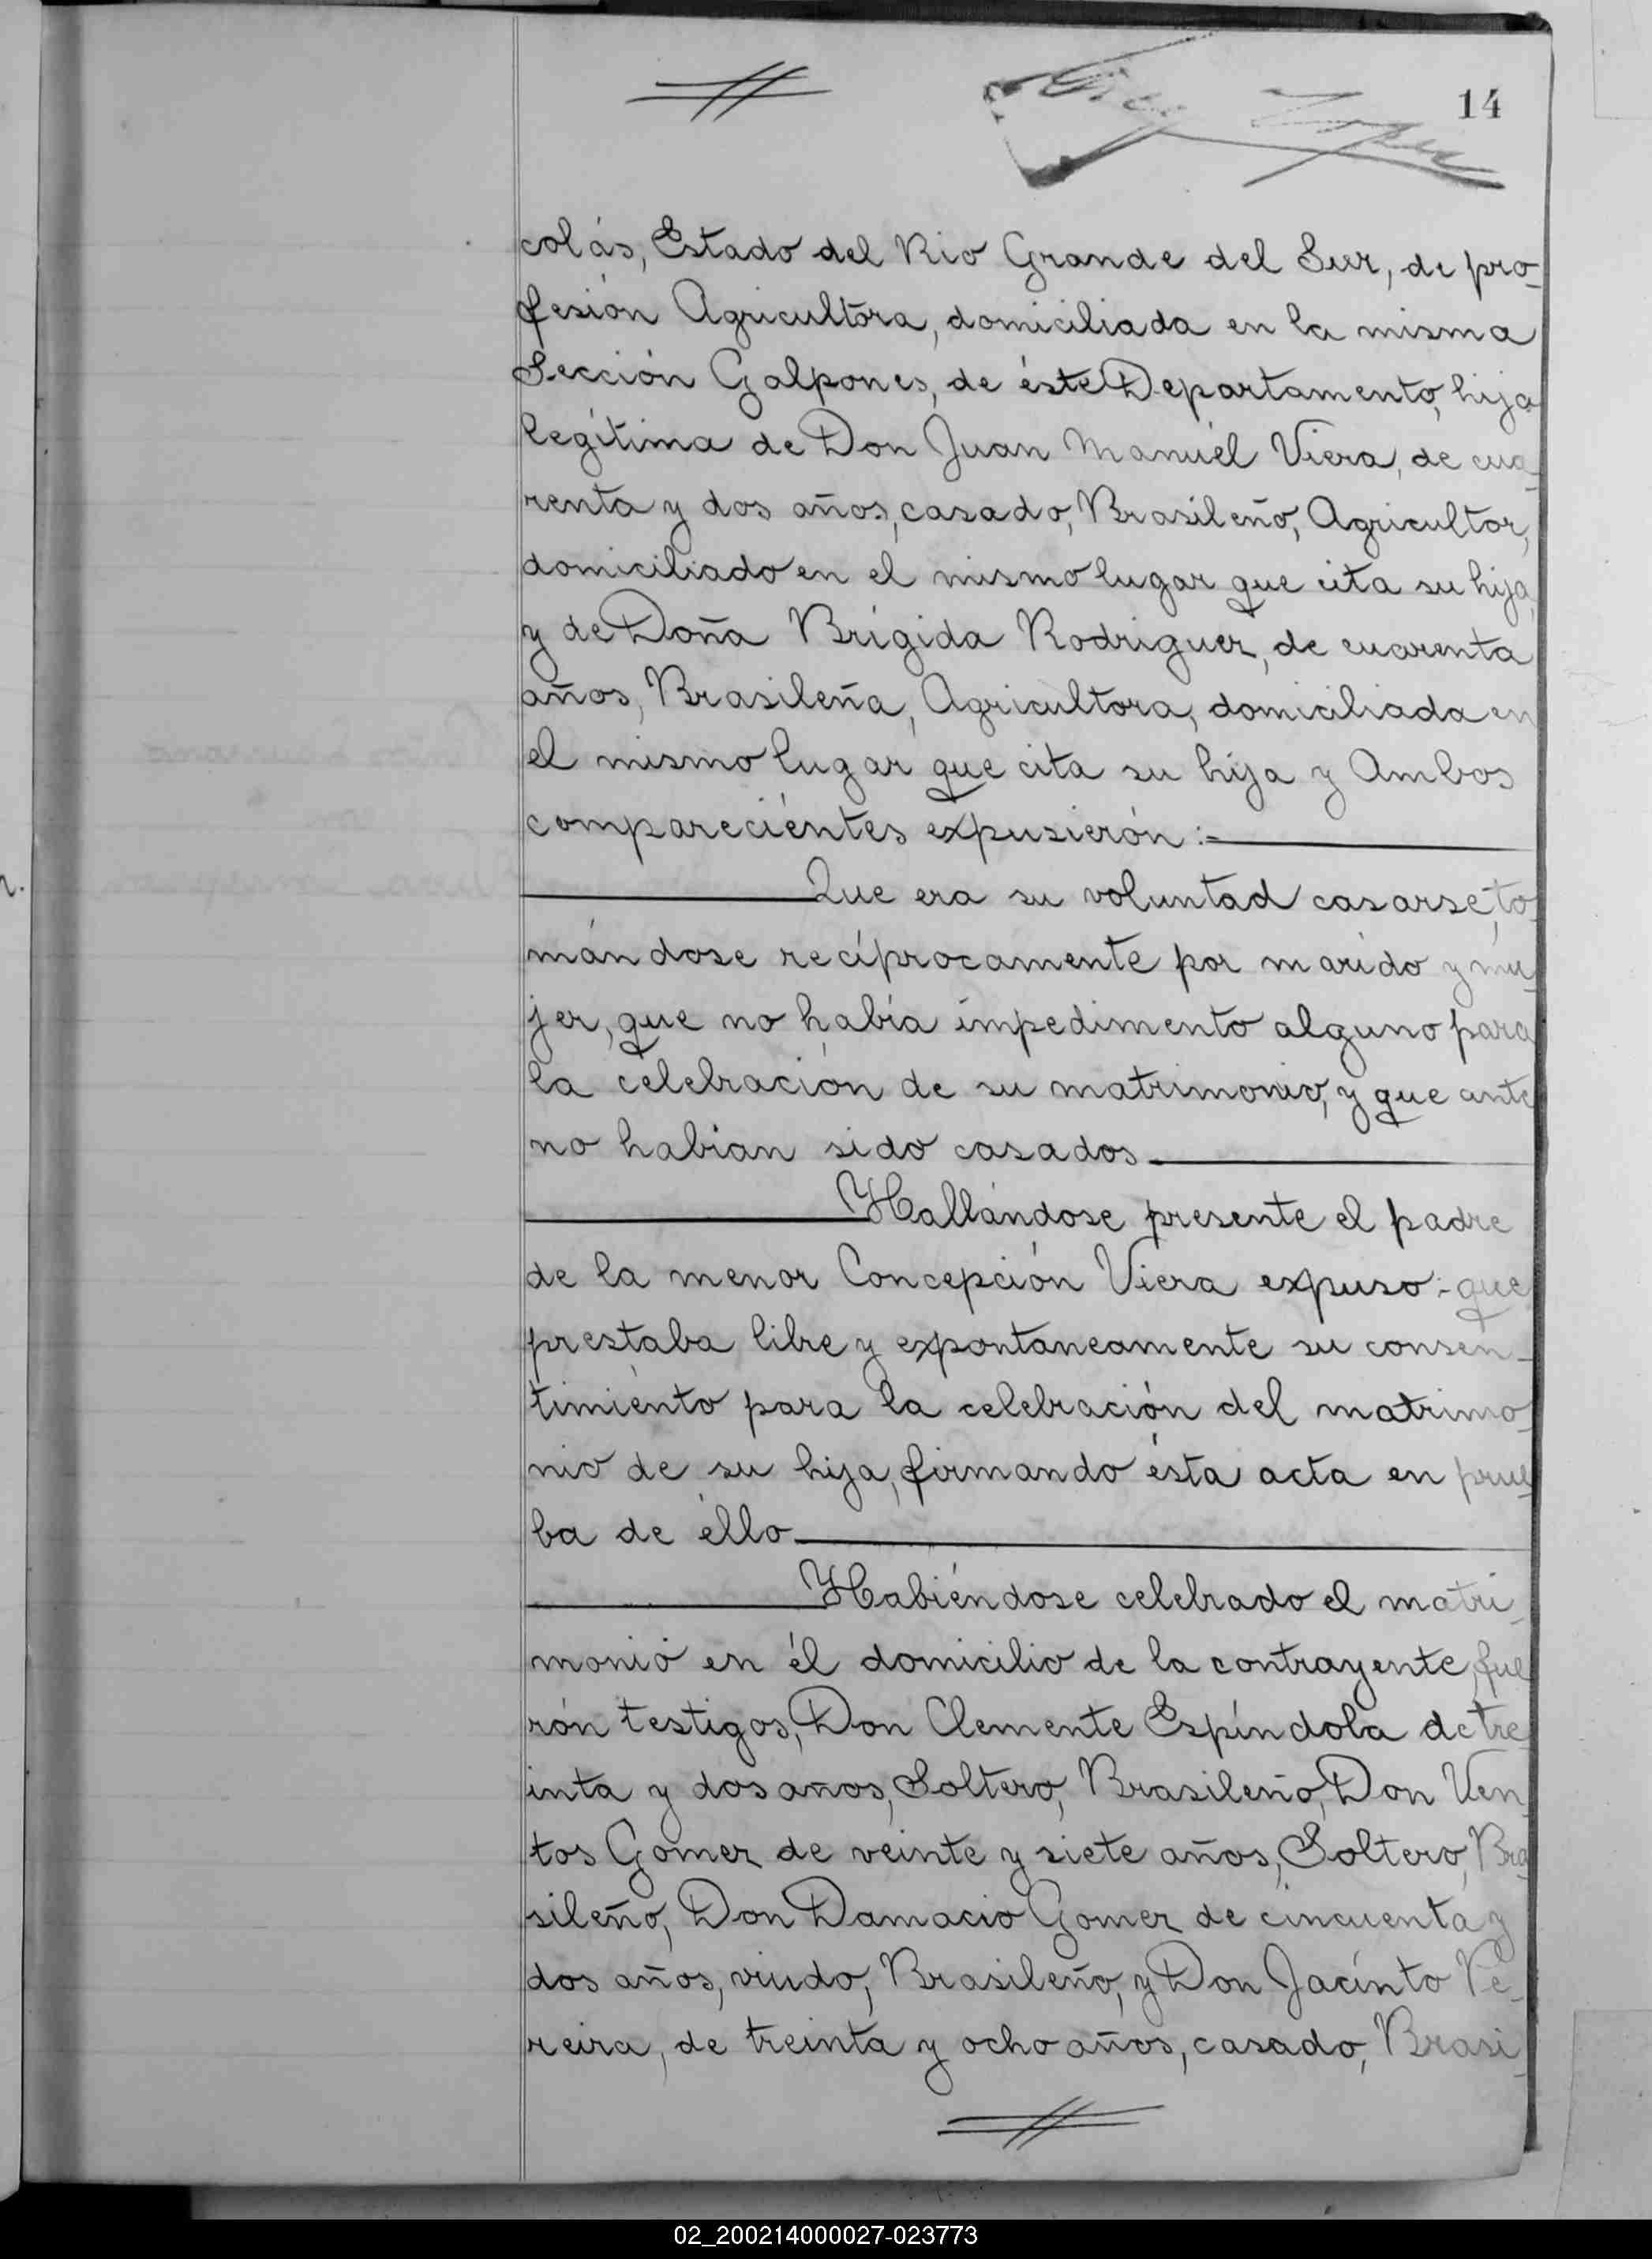 14
colás, Estado del Rio Grande del Sur, de pro-
fesión Agricultóra, domiciliada en la misma
Sección Galpones, de éste Departamento, hija
legítima de Don Juan Manuél Viera, de cua-
renta y dos años, casado, Brasileño, Agricultor,
domiciliado en el mismo lugar que cita su hija,
y de Doña Brígida Rodriguez, de cuarenta
años, Brasileña, Agricultora, domiciliada en
el mismo lugar que cita su hija y Ambos
compareciéntes expusierón:-
Que era su voluntad casarse, to-
mándose recíprocamente por marido y mu-
jer, que no había impedimento alguno para
la celebración de su matrimonio, y que ante
no habian sido casados
Hallándose presente el padre
de la menor Concepción Viera expuso:- que
prestaba libre y expontaneamente su consen-
timiénto para la celebración del matrimo-
nio de su hija, firmando ésta acta en prue-
ba de éllo
Habiéndose celebrado el matri-
monió en él domicilio de la contrayente, fue
rón testigos, Don Clemente Espíndola de tre
inta y dos años, Soltero, Brasileño, Don Ven-
tos Gomez de veinte y siete años, Soltero, Bra-
sileño, Don Damacio Gomez de cincuenta y
dos años, viudo, Brasileño, y Don Jacínto Pe-
reira, de treinta y ocho años, casado, Brasi-
02_200214000027-023773